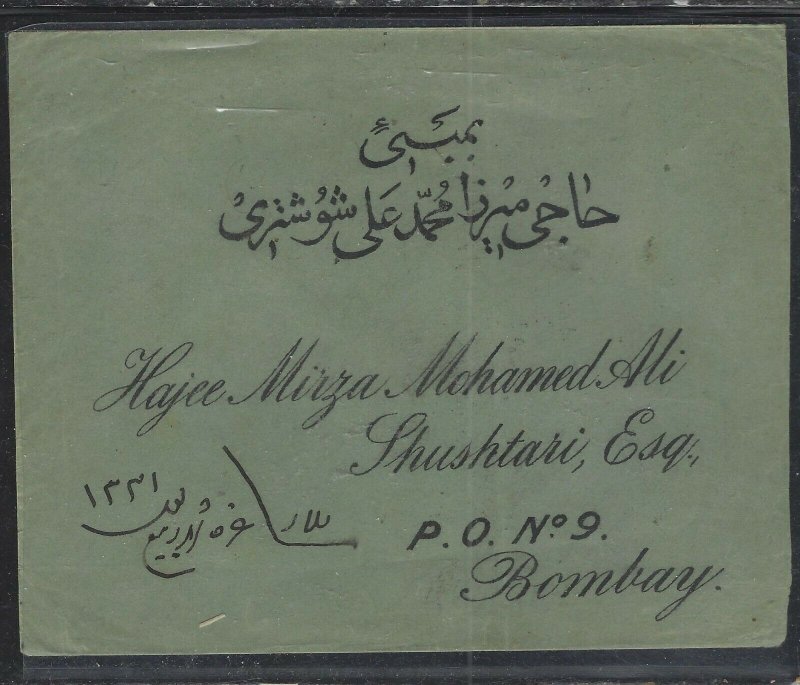 بمبئی
حاجی میرزا محمّد علی شوشتری
Hajee Mirza Mohamed Ali
Shushtari, Esq.,
۱۳۳۱
P. O. Nº 9.
Bombay.